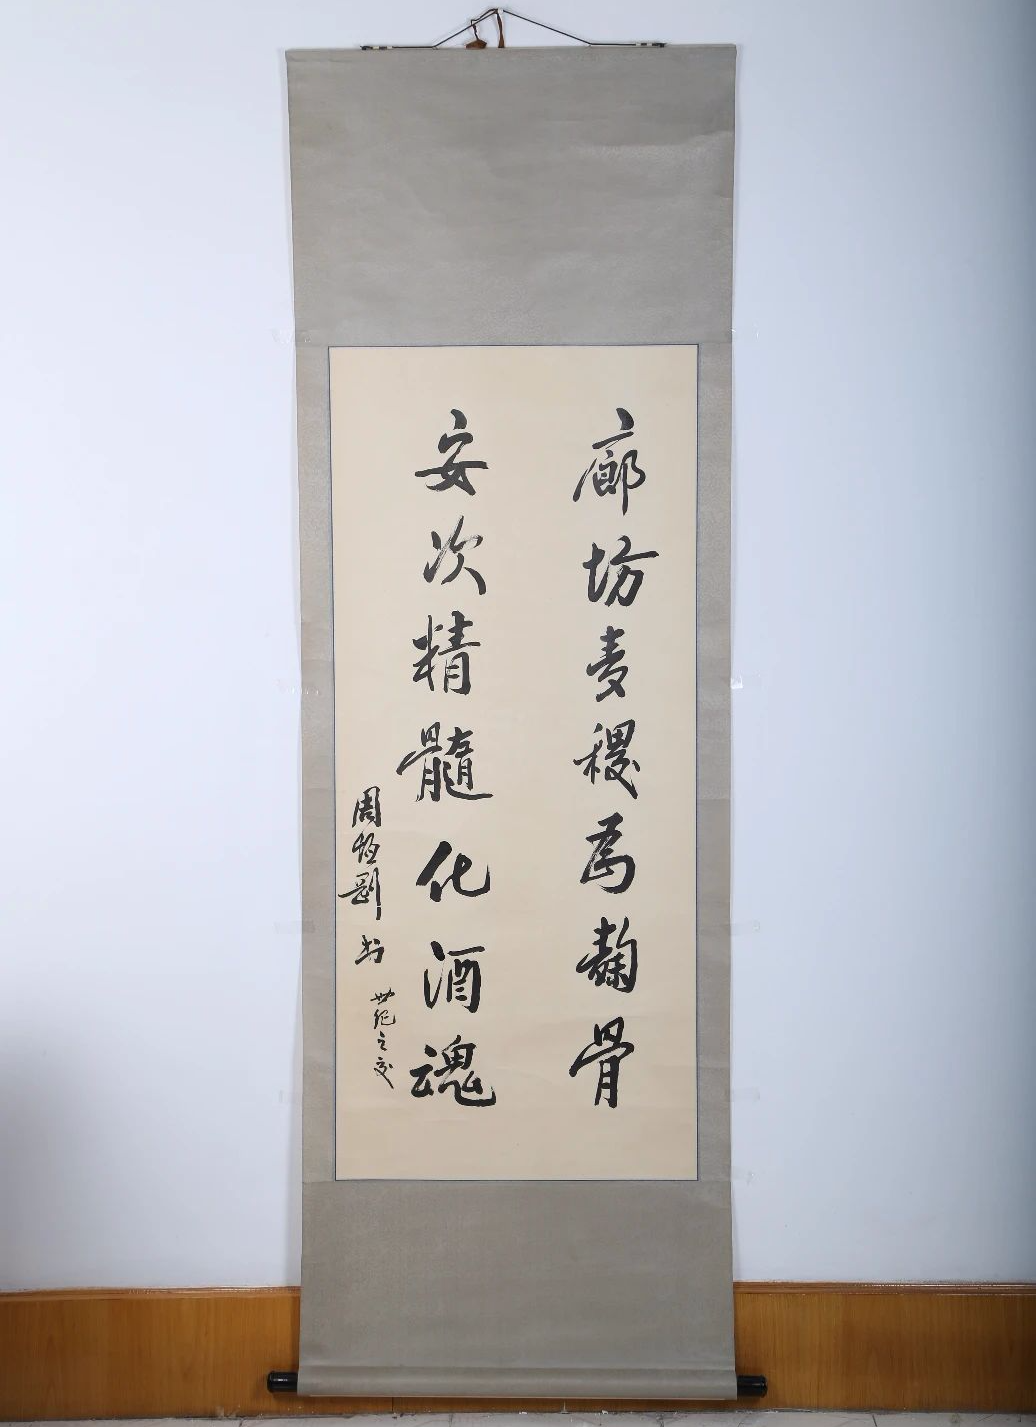 廊坊麦稷为麴骨
安次精髓化酒魂
周恒刚书
世纪之交